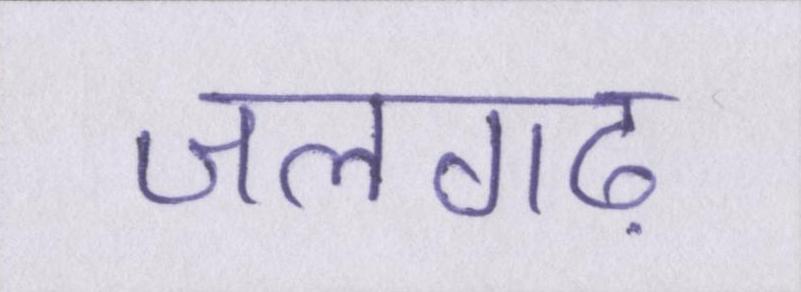 जलगढ़